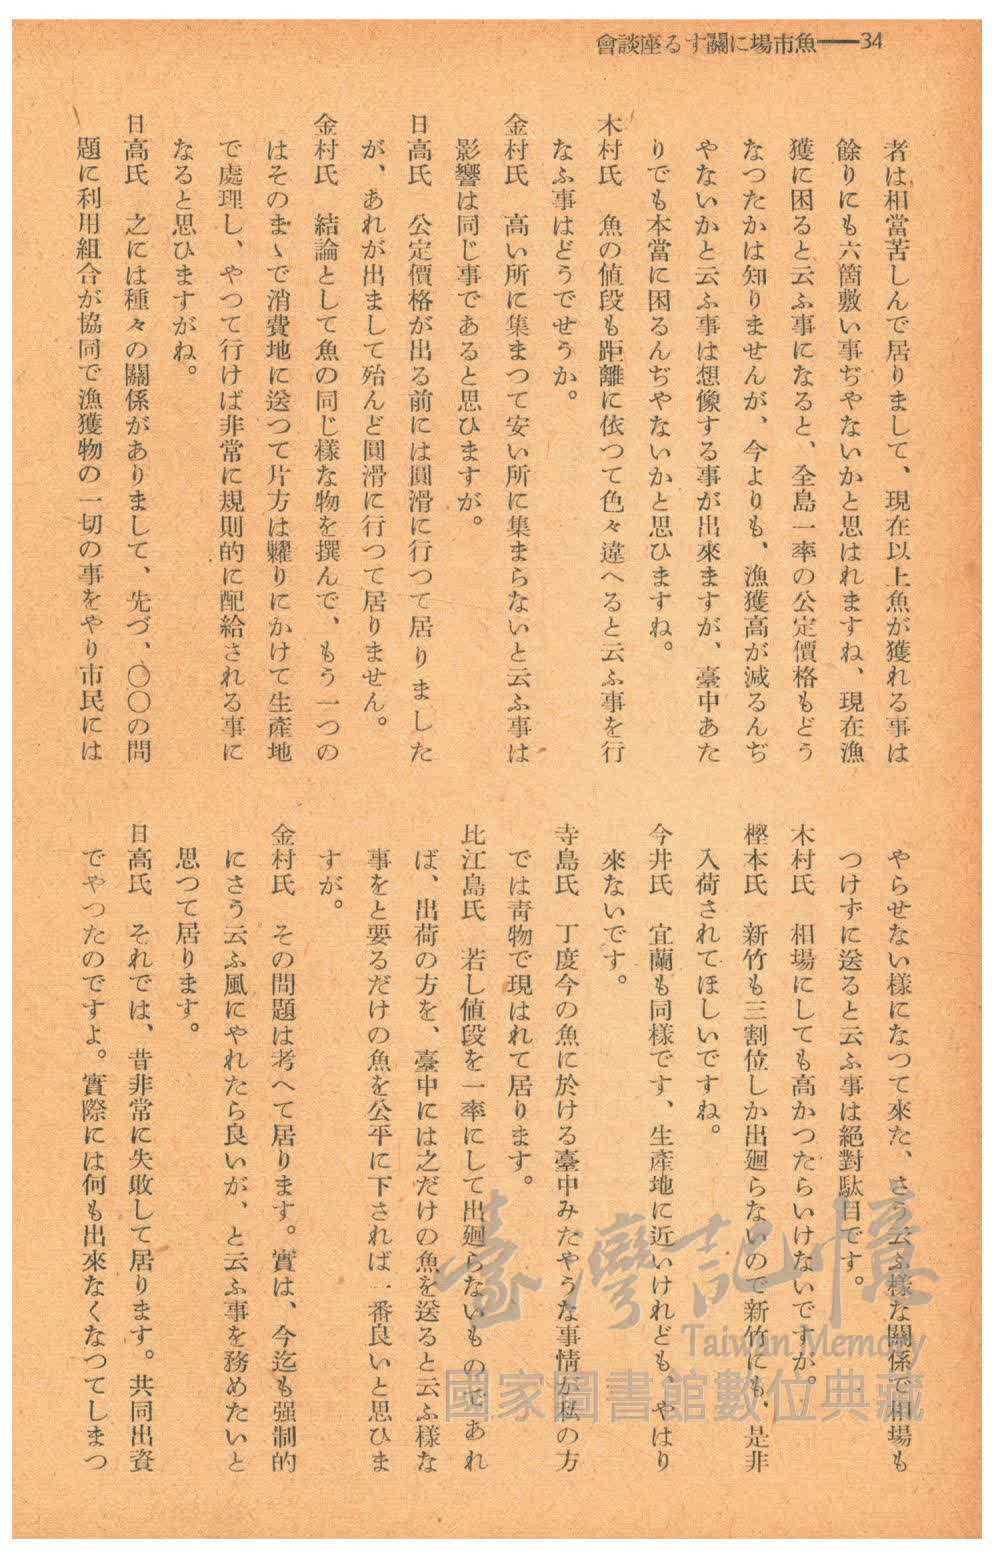 會談座るす關に場市魚━━34
者は相當苦しんで居りまして、現在以上魚が獲れる事は
餘りにも六箇敷い事ぢやないかと思はれますね、現在漁
獲に困ると云ふ事になると、全島一率の公定價格もどう
なつたかは知りませんが、今よりも、漁獲高が減るんぢ
やないかと云ふ事は想像する事が出來ますが、臺中あた
りでも本當に困るんぢやないかと思ひますね。
木村氏　魚の値段も距離に依つて色々違へると云ふ事を行
なふ事はどうでせうか。
金村氏　高い所に集まつて安い所に集まらないと云ふ事は
影響は同じ事であると思ひますが。
日高氏　公定價格が出る前には圓滑に行つて居りました
が、あれが出まして殆んど圓滑に行つて居りません。
金村氏　結論として魚の同じ樣な物を撰んで、もう一つの
はそのまゝで消費地に送つて片方は糶りにかけて生產地
で處理し、やつて行けば非常に規則的に配給される事に
なると思ひますがね。
日高氏　之には種々の關係がありまして、先づ、〇〇の問
題に利用組合が協同で漁獲物の一切の事をやり市民には
やらせない樣になつて來た、さう云ふ樣な關係で相場も
つけずに送ると云ふ事は絕對駄目です。
木村氏　相場にしても高かつたらいけないですが。
樫本氏　新竹も三割位しか出廻らないので新竹にも、是非
入荷されてほしいですね。
今井氏　宜蘭も同樣です、生產地に近いけれども、やはり
來ないです。
寺島氏　丁度今の魚に於ける臺中みたやうな事情が私の方
では靑物で現はれて居ります。
比江島氏　若し値段を一率にして出廻らないものであれ
ば、出荷の方を、臺中には之だけの魚を送ると云ふ樣な
事をと要るだけの魚を公平に下されば一番良いと思ひま
すが。
金村氏　その問題は考へて居ります。實は、今迄も强制的
にさう云ふ風にやれたら良いが、と云ふ事を務めたいと
思つて居ります。
日高氏　それでは、昔非常に失敗して居ります。共同出資
でやつたのですよ。實際には何も出來なくなつてしまつ
臺灣記憶
Taiwan Memory
國家圖書館數位典藏